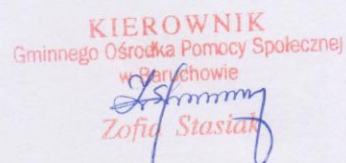 KIEROWNIK
Gminnego Ośrodka Pomocy Społecznej
w Baruchowie
Zofia Stasiak